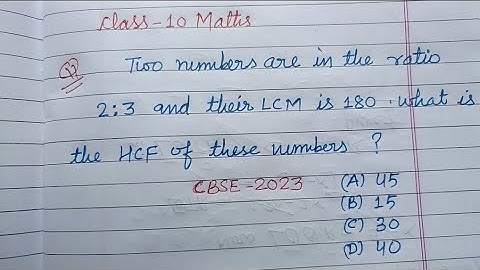 Class-10 Maths
Q) Two numbers are in the ratio
2:3 and their LCM is 180. what is
the HCF of these numbers ?
CBSE-2023
(A) 45
(B) 15
(C) 30
(D) 40